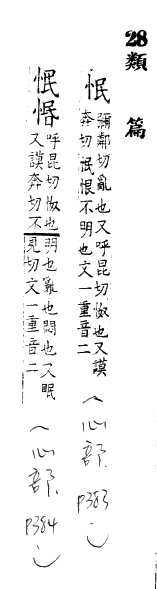 28類篇
怋 彌鄰切亂也又呼昆切惛也又謨
奔切泯怋不明也文一重音二
(心部 P383)
惽惛 呼昆切惛也明也亂也悶也又眠
又謨奔切不見切文一重音二
(心部 P384)